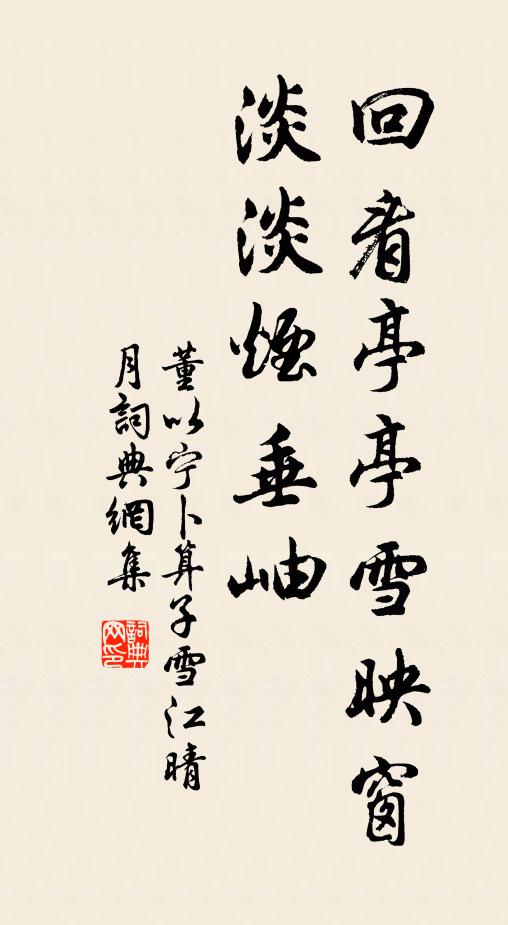 回看亭亭雪映窗
淡淡煙垂岫
董以宁卜算子雪江晴
月詞典網集
詞典
网印